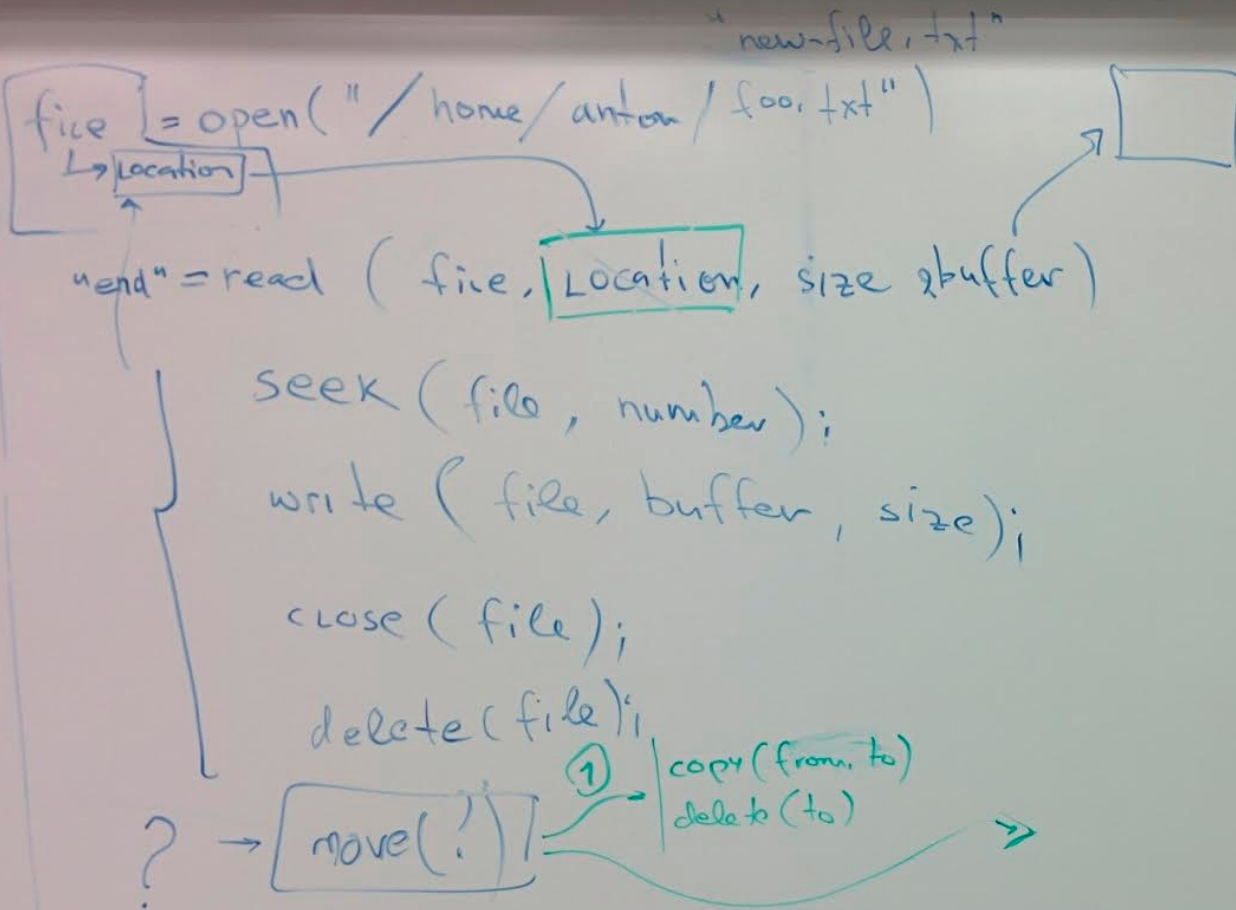 "new-file.txt"
file = open("/home/anton/foo.txt")
↳ Location
"end" = read (file, Location, size &buffer)
seek (file, number);
write (file, buffer, size);
close (file);
delete (file);
① copy (from, to)
delete (to)
? → move(?)